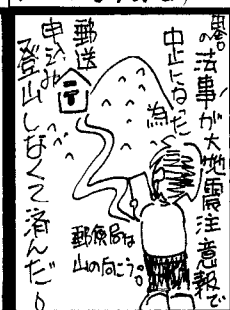 の法事が大地震注意報で
中止になった
為
郵送
申込み
登山しなくて済んだ。
〒
郵便局は
山の向こう。